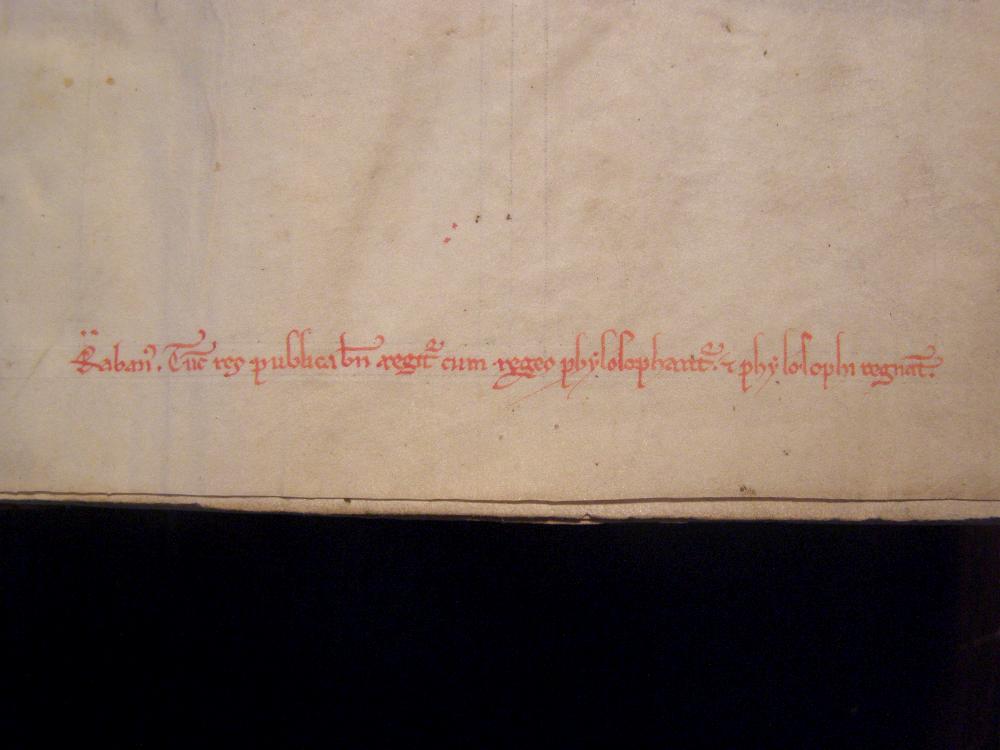 Raban᾿. Tūc res publica bn̄ regit᷑ cum reges phylosophant᷑. ⁊ phylosophi regnāt.